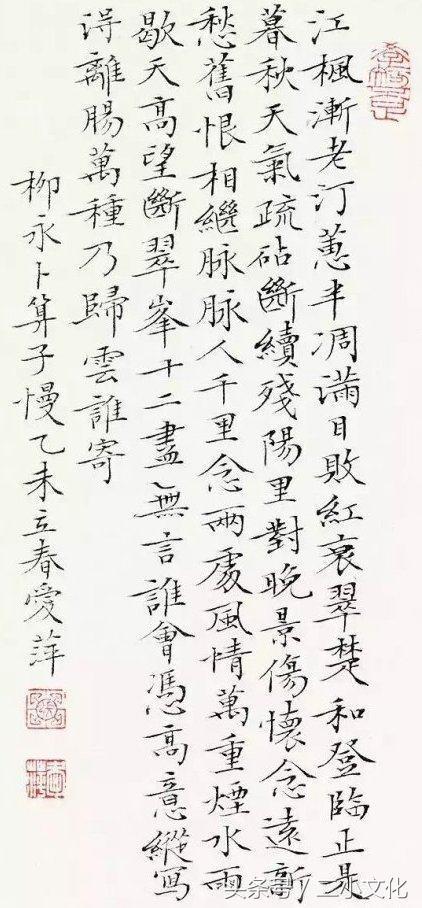 江楓漸老汀蕙半凋滿目敗紅衰翠楚和登臨正是
暮秋天氣疏砧斷續殘陽里對晚景傷懷念遠新
愁舊恨相繼脉脉人千里念兩處風情萬重煙水雨
歇天高望斷翠峯十二盡無言誰會馮高意縱寫
得離腸萬種乃歸雲誰寄
柳永卜算子慢乙未立春愛萍
头条号 / 二小文化